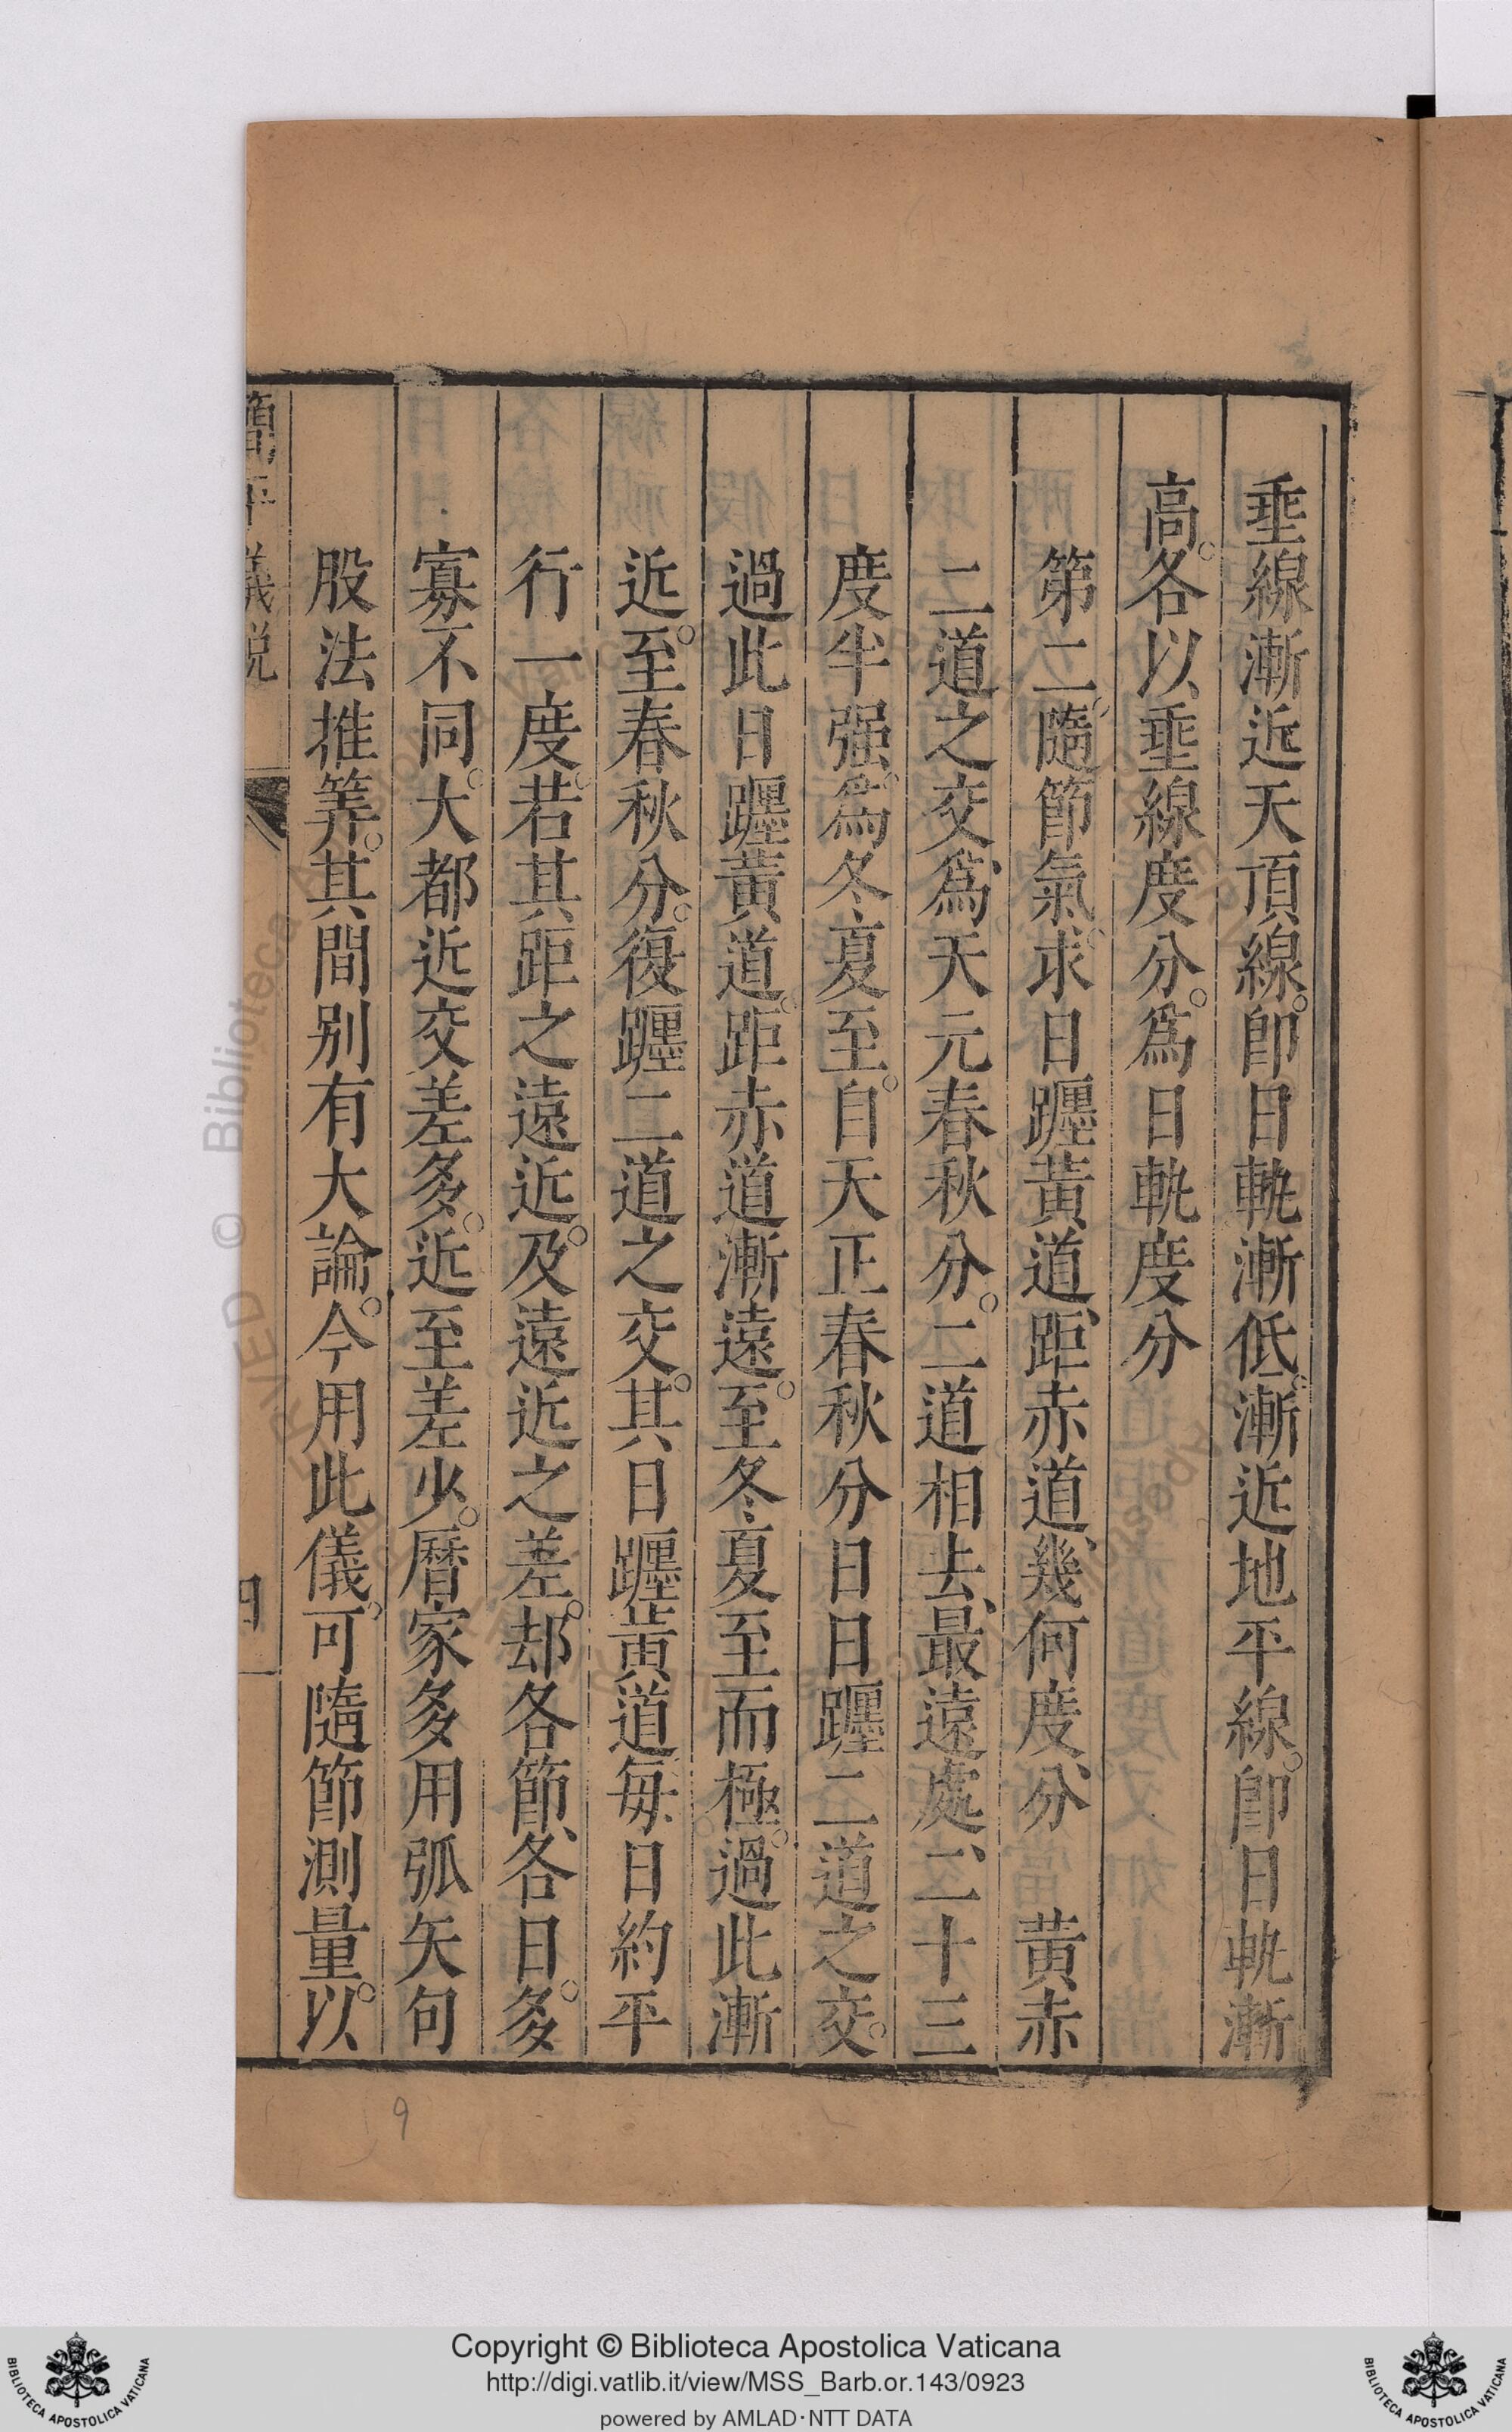 垂線漸近天頂線。即日軌漸低。漸近地平線。即日軌漸
高。各以垂線度分。為日軌度分
第二隨節氣求日躔黃道、距赤道、幾何度分、黃赤
二道之交、為天元春秋分。二道相去、最遠處、二十三
度半强。為冬夏至。自天正春秋分日日躔二道之交。
過此日躔黃道。距赤道漸遠。至冬夏至而極。過此漸
近。至春秋分。復躔二道之交。其日躔黃道每日約平
行一度。若其距之遠近。及遠近之差。却各節、各日。多
寡不同。大都近交差多。近至差少。曆家多用弧矢句
股法推筭。其間别有大論。今用此儀。可隨節測量。以
簡平儀説
四
9
Copyright © Biblioteca Apostolica Vaticana
http://digi.vatlib.it/view/MSS_Barb.or.143/0923
powered by AMLAD·NTT DATA
BIBLIOTECA APOSTOLICA VATICANA
BIBLIOTECA APOSTOLICA VATICANA